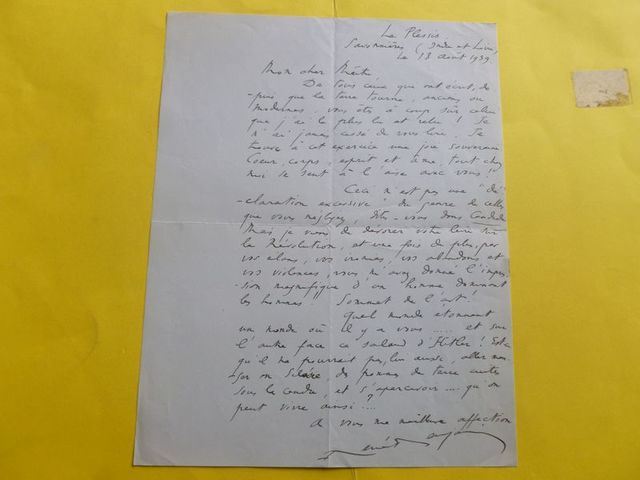 Le Plessis
Savonnières (Indre et Loire)
le 13 août 1939.
Mon cher Maître
De tous ceux qui ont écrit, de-
-puis que la terre tourne, anciens ou
modernes, vous êtes à coup sûr celui
que j'ai le plus lu et relu ! Je
n'ai jamais cessé de vous lire. Je
trouve à cet exercice une joie souveraine
Coeur, corps, esprit et âme, tout chez
moi se sent à l'aise avec vous !
Ceci n'est pas une "dé-
-claration excessive" du genre de celles
que vous négligez, dites-vous dans
Mais je viens de dévorer votre livre sur
la Révolution, et une fois de plus, par
vos élans, vos ironies, vos abandons et
vos violences, vous m'avez donné l'impres-
-sion magnifique d'un homme dominant
les hommes ! Sommet de l'art !
Quel monde étonnant
un monde où il y a vous ..... et sur
l'autre face ce salaud d'Hitler ! Est-ce
qu'il ne pourrait pas, lui aussi, aller
des pommes de terre cuites
sous la cendre, et s'apercevoir .... qu'on
peut vivre ainsi ? ....
A vous ma meilleure affection